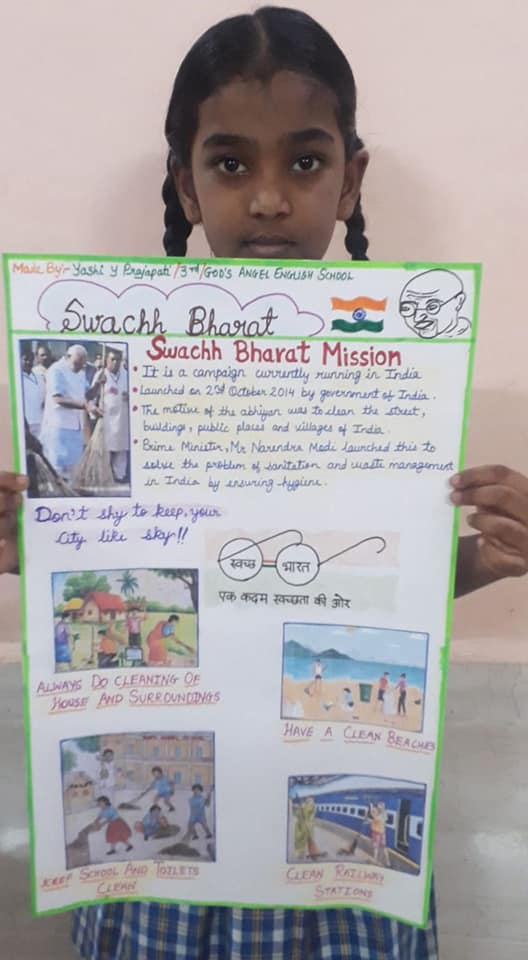 Made By:- Yashi Y Prajapati/3rd/GOD'S ANGEL ENGLISH SCHOOL
Swachh Bharat
Swachh Bharat Mission
• It is a campaign currently running in India
• Launched on 2nd October 2014 by government of India.
• The motive of the abhiyan was to clean the street,
buildings, public places and villages of India.
• Prime Minister, Mr Narendra Modi launched this to
solve the problem of sanitation and waste management
in India by ensuring hygiene.
Don't shy to keep, your
City like sky!!
स्वच्छ भारत
एक कदम स्वच्छता की ओर
ALWAYS DO CLEANING OF
HOUSE AND SURROUNDINGS
HAVE A CLEAN BEACHES
KEEP SCHOOL AND TOILETS
CLEAN
CLEAN RAILWAY
STATIONS